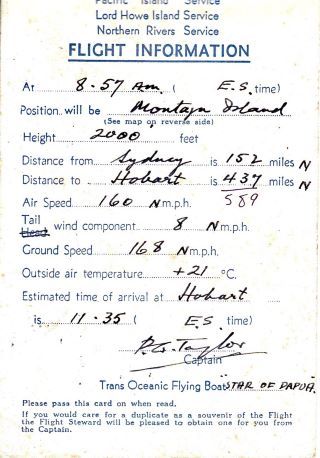 Pacific Island Service
Lord Howe Island Service
Northern Rivers Service
FLIGHT INFORMATION
At 8.57 Am. ( E.S. time)
Position will be Montagu Island
(See map on reverse side)
Height 2000 feet
Distance from Sydney is 152 miles N
Distance to Hobart is 437 miles N
589
Air Speed 160 N m.p.h.
Tail
Head wind component 8 N m.p.h.
Ground Speed 168 N m.p.h.
Outside air temperature +21 °C.
Estimated time of arrival at Hobart
is 11.35 ( E.S. time)
P.G. Taylor
Captain
Trans Oceanic Flying Boat STAR OF PAPUA.
Please pass this card on when read.
If you would care for a duplicate as a souvenir of the Flight
the Flight Steward will be pleased to obtain one for you from
the Captain.